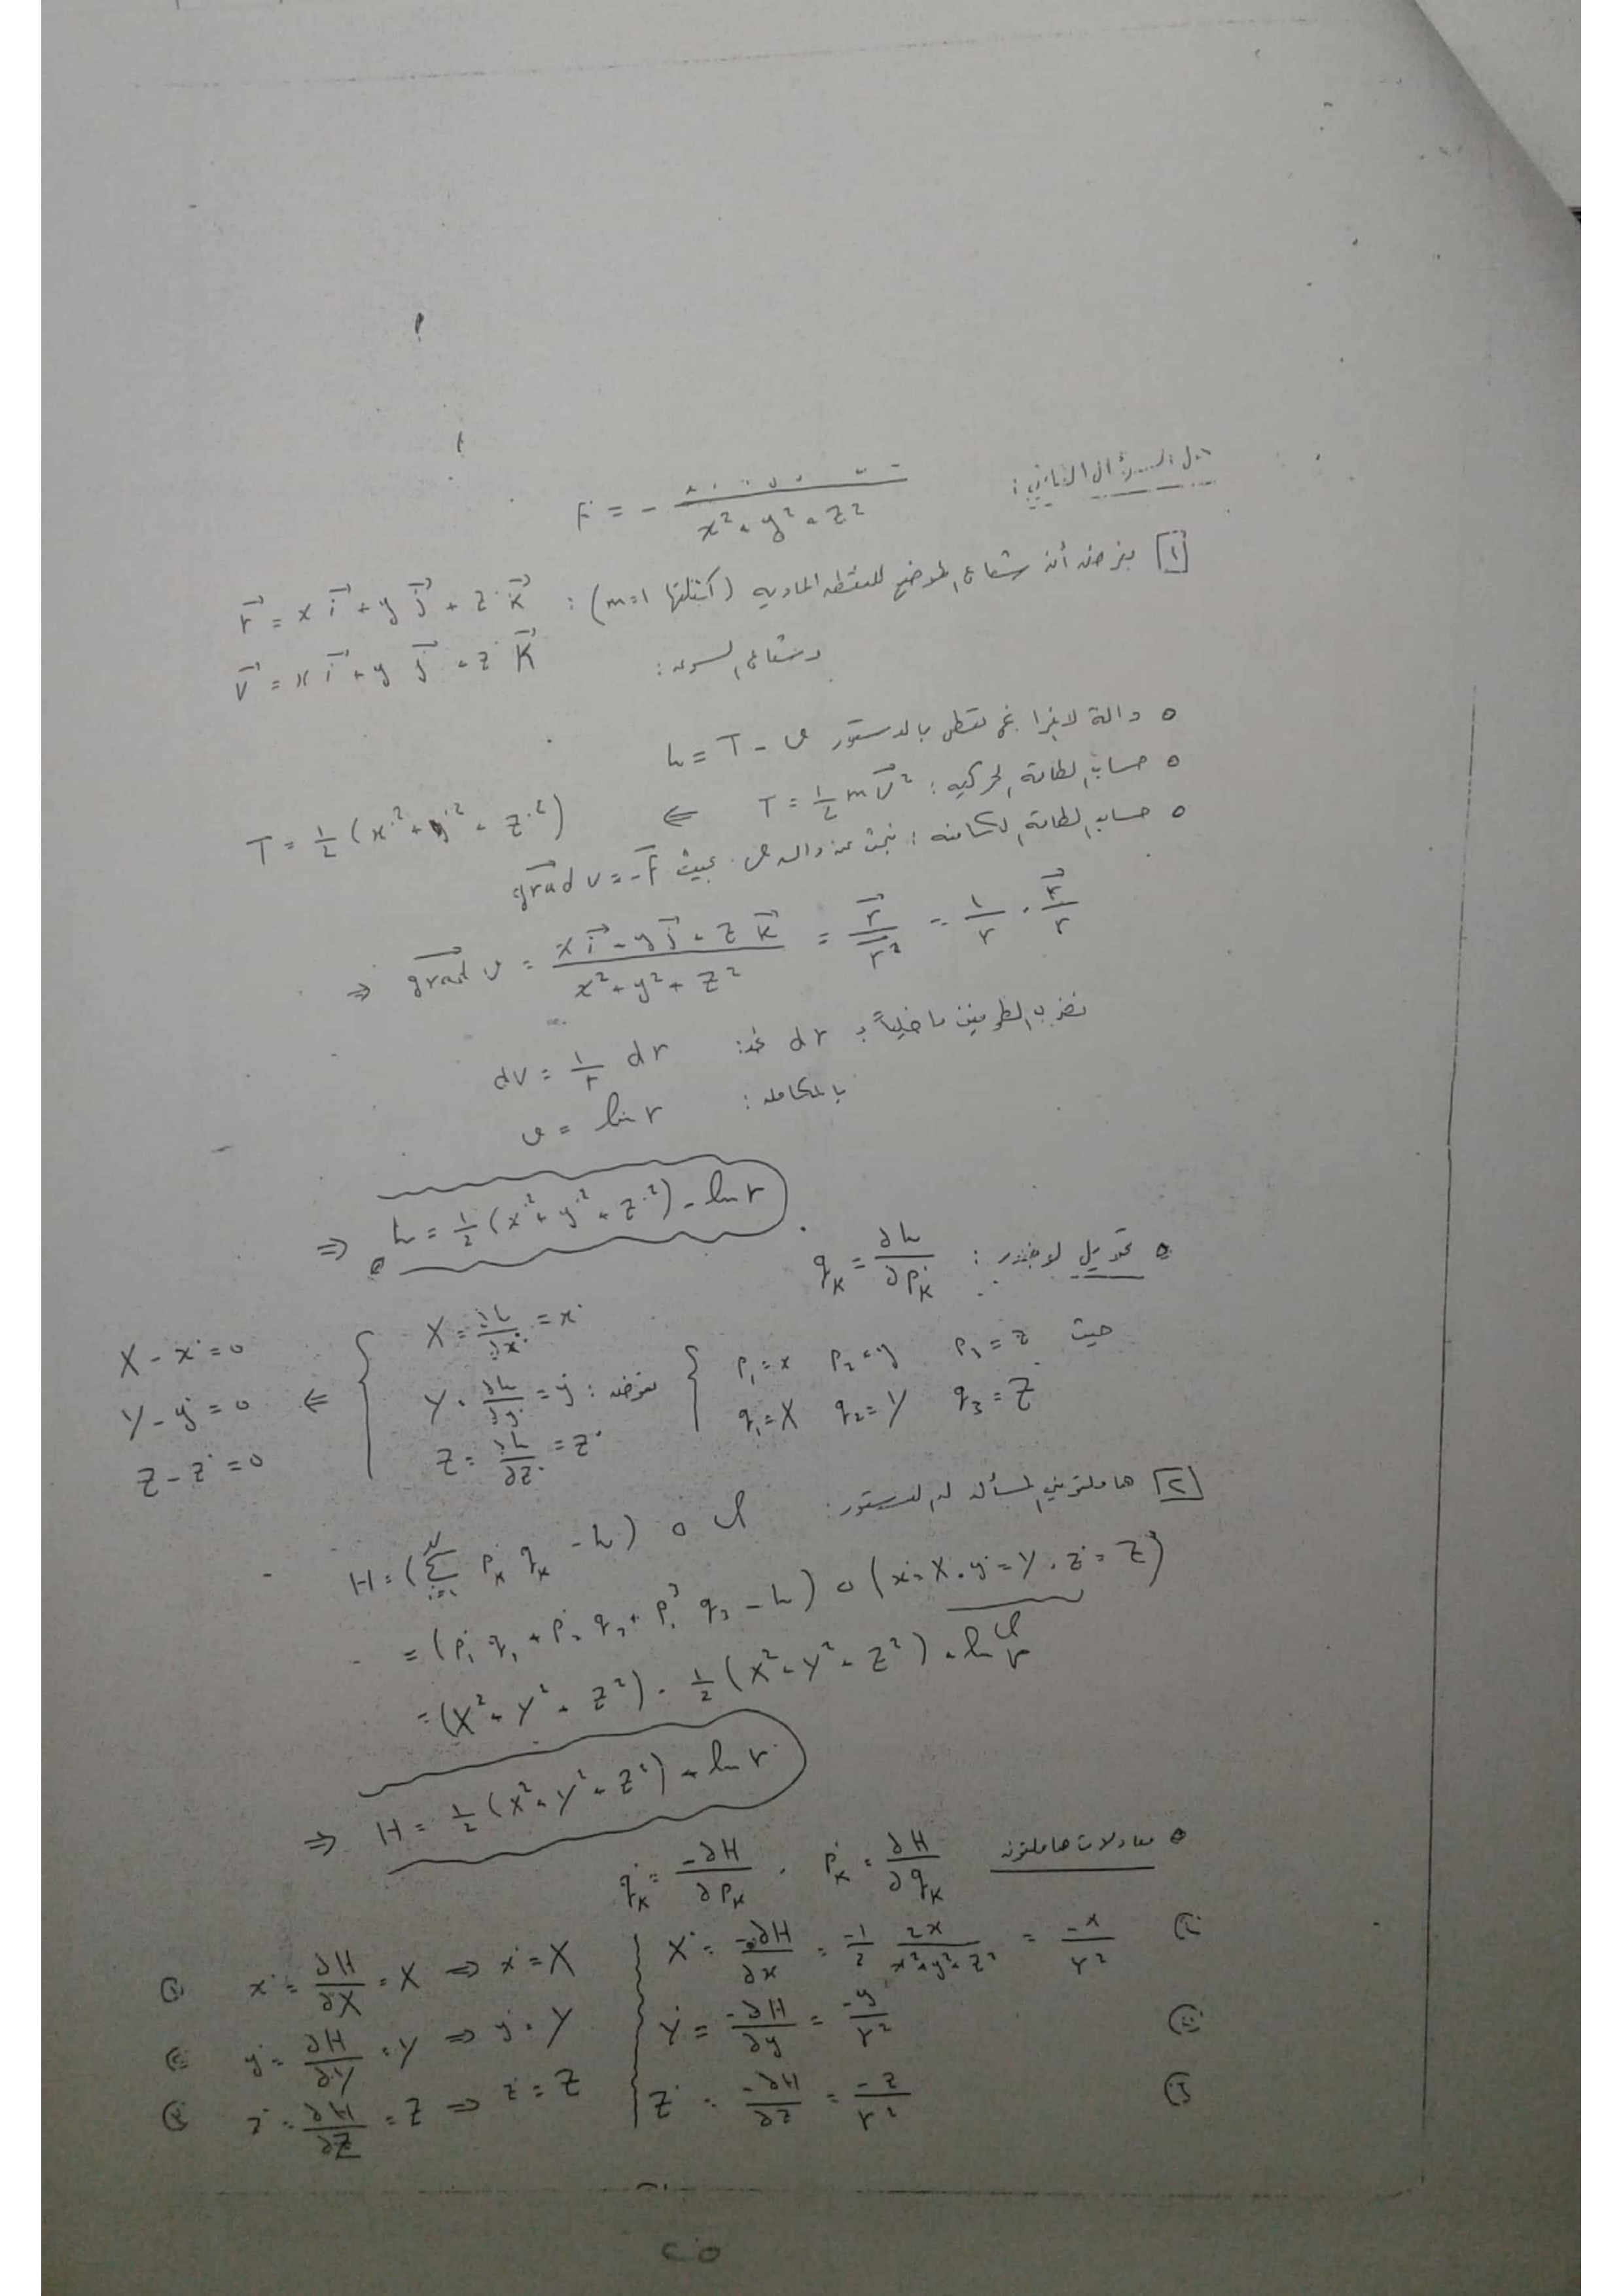 حل السؤال الثاني: F = - ــــــ / x² + y² + z²
[١] بفرض أن شعاع الموضع للنقطة المادية (كتلتها m=1): r⃗ = x i⃗ + y j⃗ + z k⃗
وشعاع السرعة: V⃗ = x˙ i⃗ + y˙ j⃗ + z˙ k⃗
○ دالة لاغرانج تعطى بالدستور L = T - v
○ حساب الطاقة الحركية: T = ½ m v⃗² ⇐ T = ½ (x˙² + y˙² + z˙²)
○ حساب الطاقة الكامنة: نبحث عن دالة v بحيث grad v = -F⃗
⇒ grad v = (x i⃗ + y j⃗ + z k⃗) / (x² + y² + z²) = r⃗ / r² = 1/r · r⃗/r
نضرب الطرفين داخلياً بـ dr نجد: dv = 1/r dr
بالمكاملة: v = ln r
⇒ L = ½ (x˙² + y˙² + z˙²) - ln r
○ تحويل لوجندر: q_k = ∂L / ∂p˙_k
حيث { p₁ = x p₂ = y p₃ = z
q₁ = X q₂ = Y q₃ = Z
نعوض: { X = ∂L/∂x˙ = x˙
Y = ∂L/∂y˙ = y˙
Z = ∂L/∂z˙ = z˙
⇐ X - x˙ = 0
Y - y˙ = 0
Z - z˙ = 0
[٢] هاملتوني المسألة له الدستور: H = (Σ p˙_k q_k - L) ○ φ
= (p˙₁ q₁ + p˙₂ q₂ + p˙₃ q₃ - L) ○ (x˙ = X, y˙ = Y, z˙ = Z)
φ
= (X² + Y² + Z²) - ½ (X² + Y² + Z²) + ln r
⇒ H = ½ (X² + Y² + Z²) + ln r
○ معادلات هاملتون p˙_k = ∂H/∂q_k , q˙_k = -∂H/∂p_k
① x˙ = ∂H/∂X = X ⇒ x˙ = X | X˙ = -∂H/∂x = -1/2 2x/(x²+y²+z²) = -x/r²
② y˙ = ∂H/∂Y = Y ⇒ y˙ = Y | Y˙ = -∂H/∂y = -y/r²
③ z˙ = ∂H/∂Z = Z ⇒ z˙ = Z | Z˙ = -∂H/∂z = -z/r²